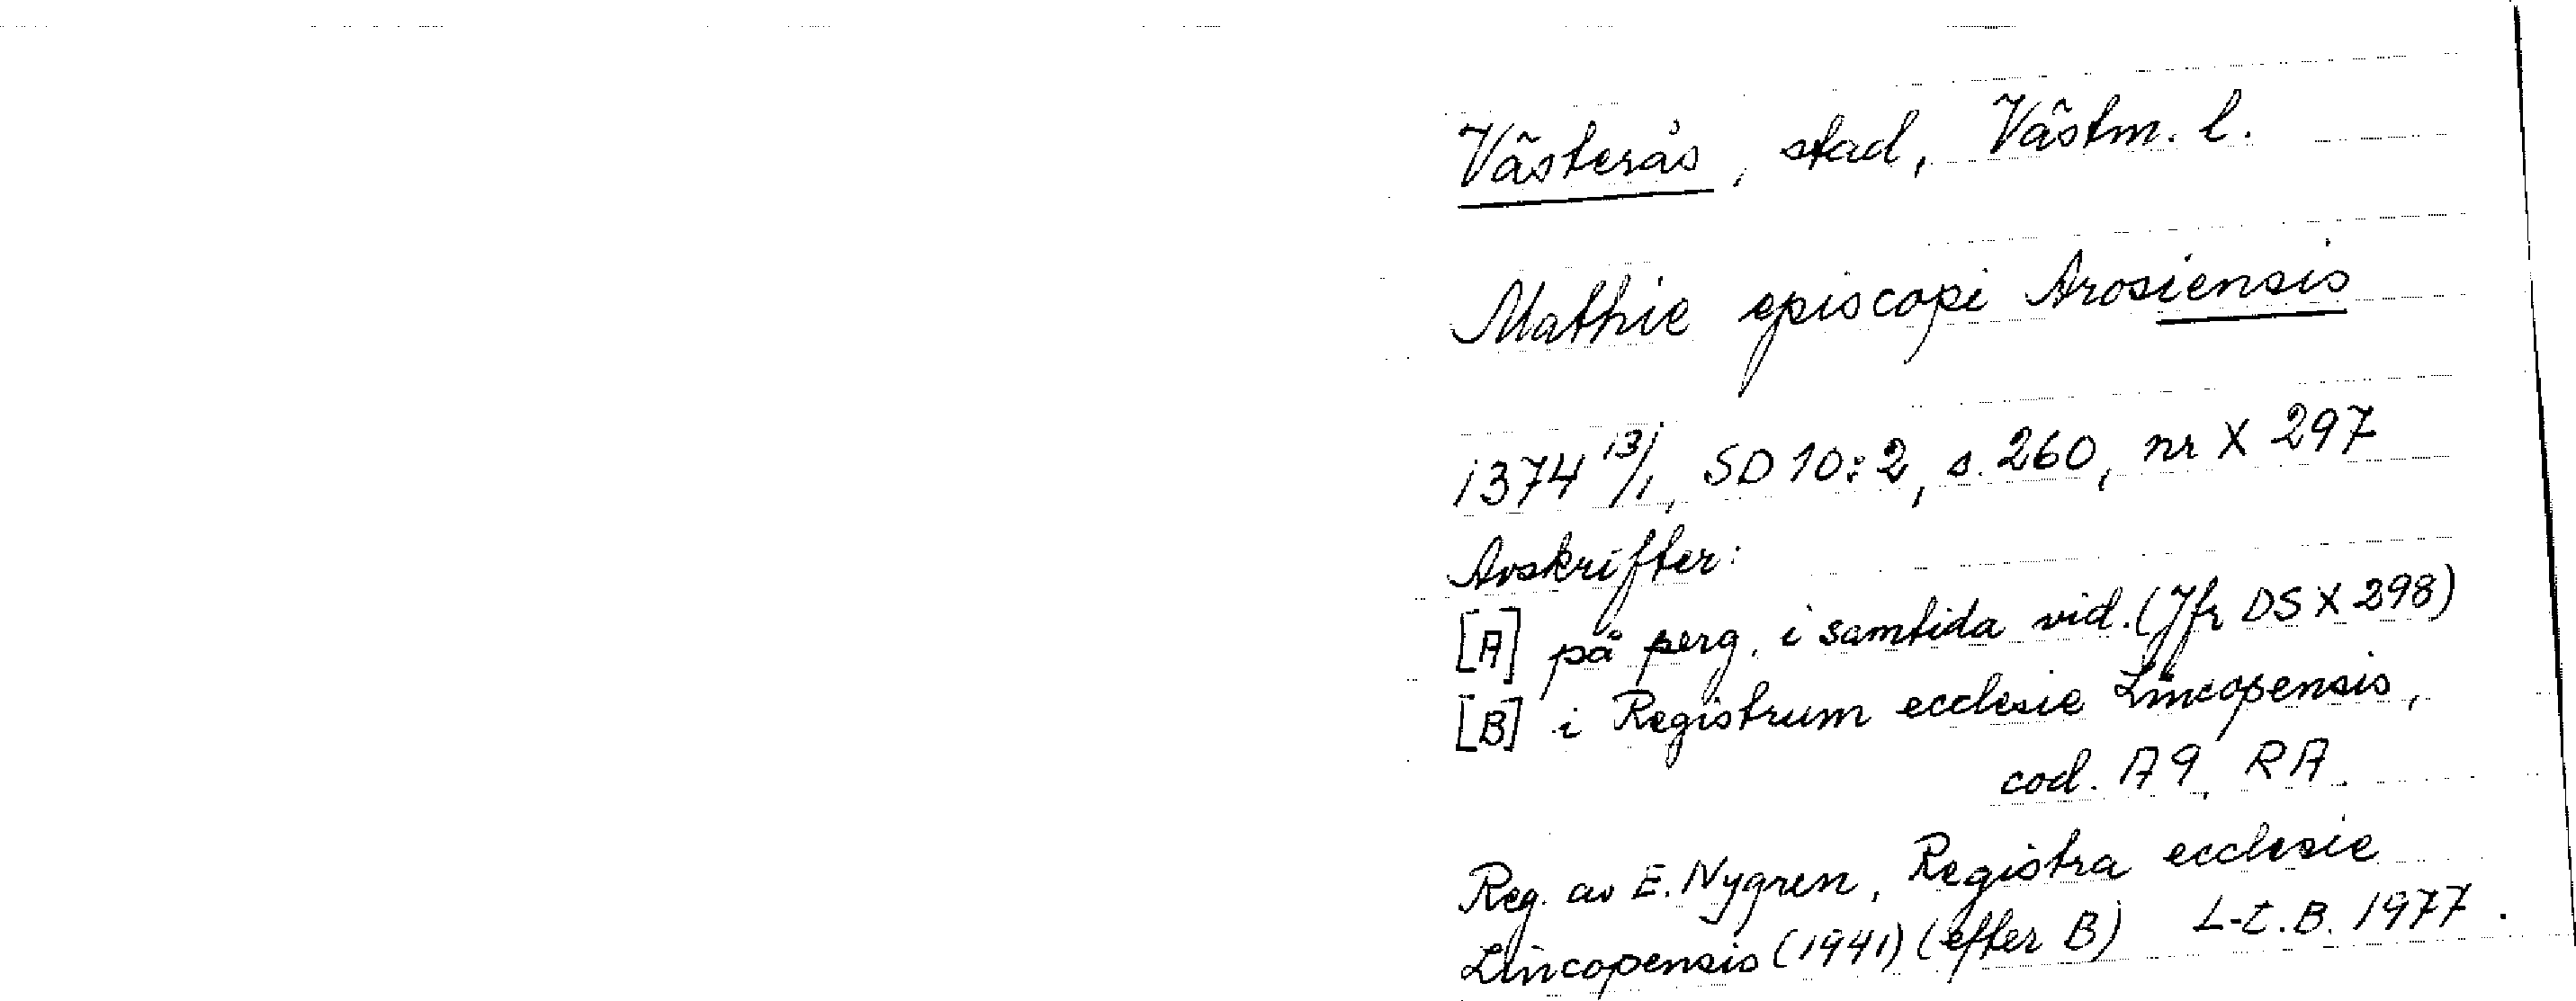 Västerås, stad, Västm. l.
Mathie episcopi Arosiensis
1374 13/1, SD 10:2, s. 260, nr X 297
Avskrifter:
[A] på perg. i samtida vid. (Jfr DS X 298)
[B] i Registrum ecclesie Lincopensis,
cod. A 9, RA.
Reg. av E. Nygren, Registra ecclesie
Lincopensis (1941) (efter B) L-E. B. 1977.